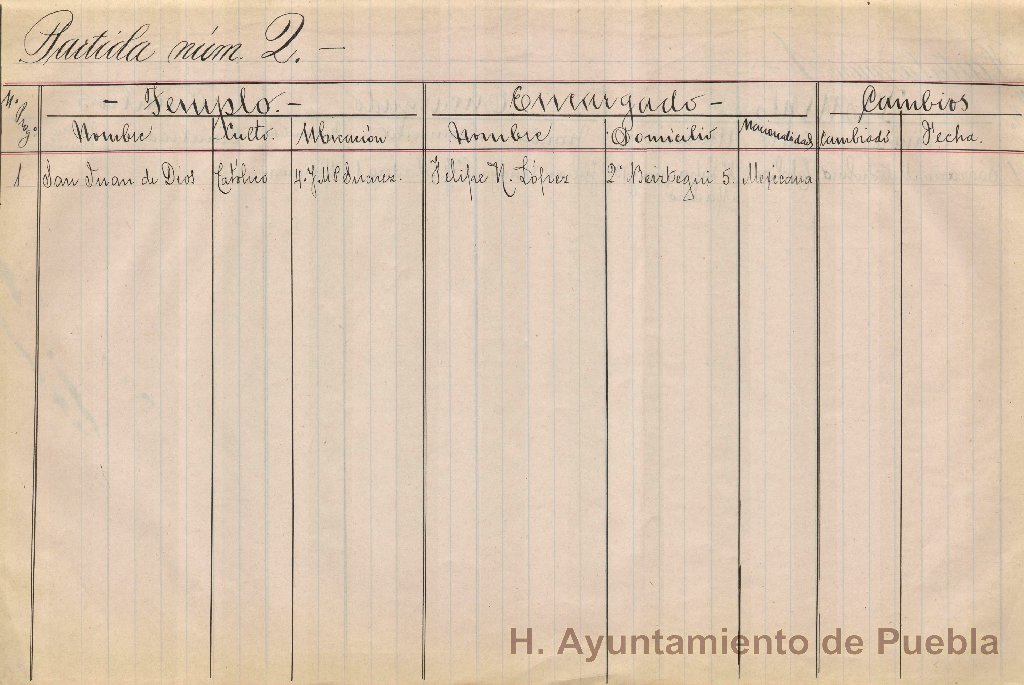 Partida núm. 2.-
Nº Progº
- Templo. -
Encargado -
Cambios
Nombre Culto. Ubicación Nombre Domicilio Nacionalidad Cambiado Fecha.
1 San Juan de Dios Católico 4ª J. Mª P. Suarez. Felipe N. López 2ª 5. Mexicana
H. Ayuntamiento de Puebla